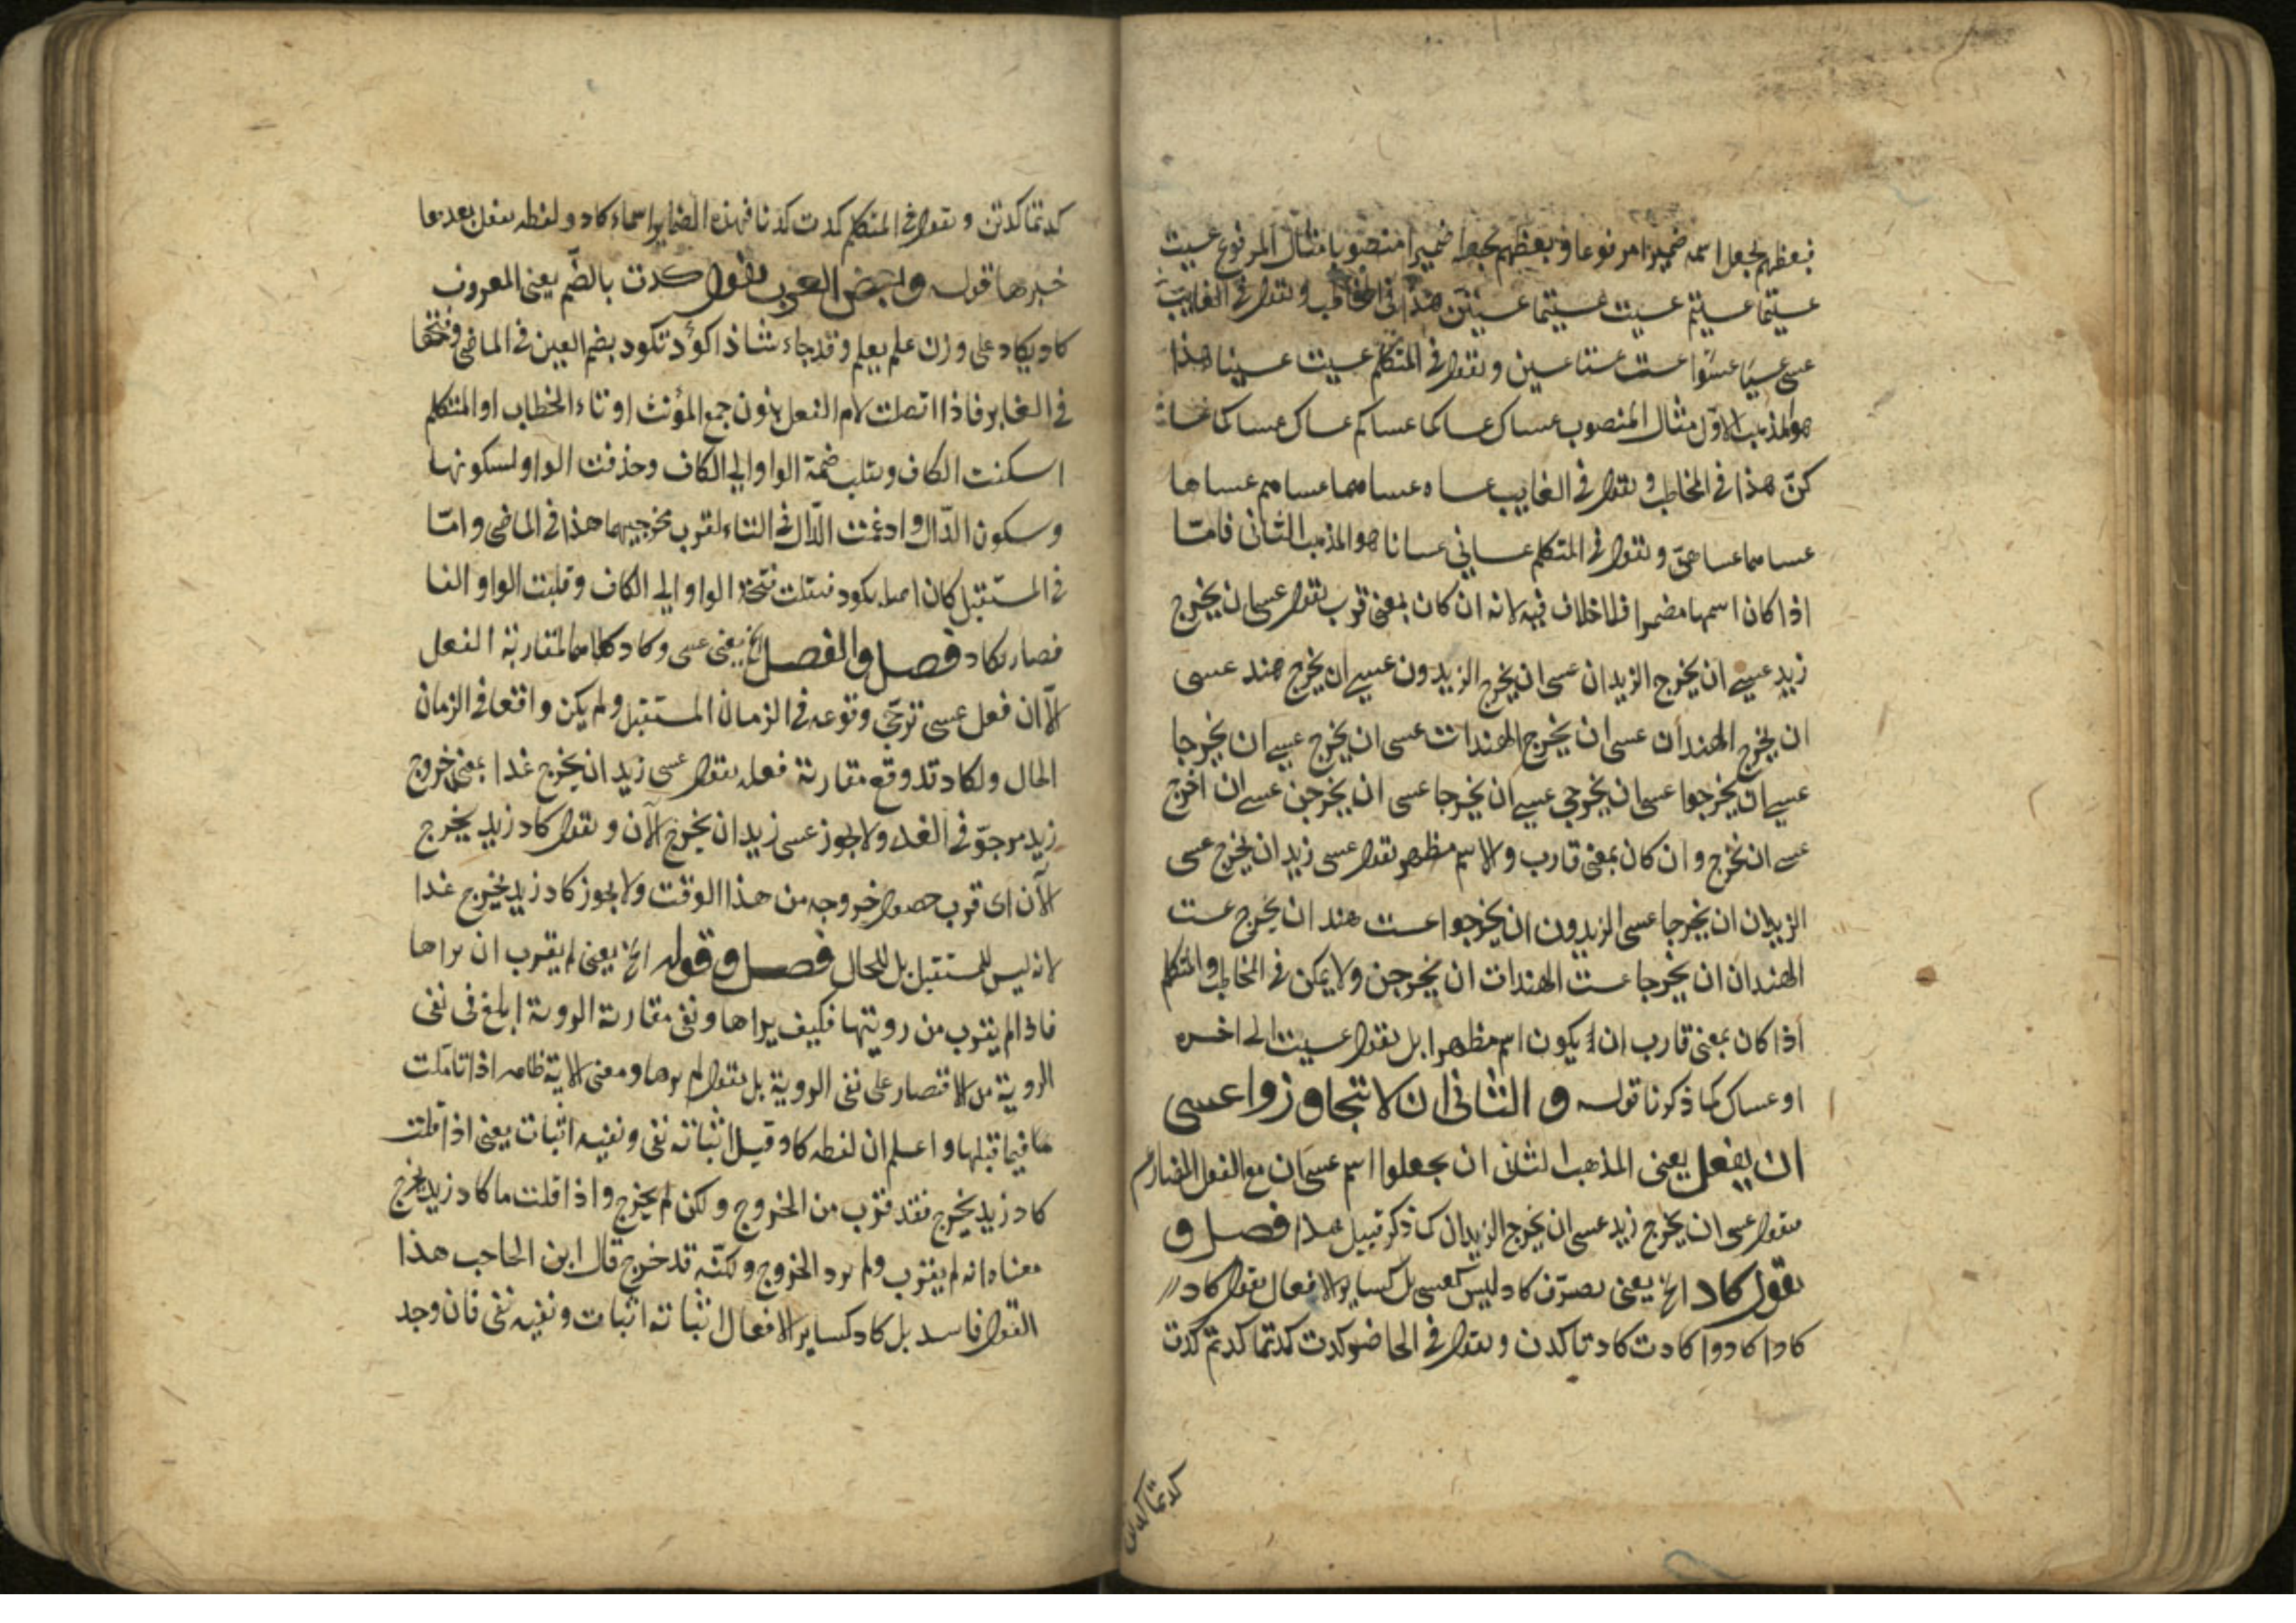 فبعظهم يجعل اسمه ضميرا مرفوعا وبعظهم يجعله ضميرا منصوبا مثال المرفوع عسيت
عسيتما عسيتم عسيت عسيتما عسيتن هذا في المخاطب وتقول في الغايب
عسى عسيا عسوا عست عستا عسين وتقول في المتكلم عسيت عسينا هذا
هو المذهب الاوّل مثال المنصوب عساك عساكما عساكم عساك عساكما عسا
كنّ هذا في المخاطب وتقول في الغايب عساه عساهما عساهم عساها
عساهما عساهنّ وتقول في المتكلم عساني عسانا هو المذهب الثاني فامّا
اذا كان اسمها مضمرا فلا خلاف فيه لانه ان كان بمعنى قرب تقول عسى ان يخرج
زيد عسى ان يخرج الزيدان عسى ان يخرج الزيدون عسى ان يخرج هند عسى
ان يخرج الهندان عسى ان يخرج الهندات عسى ان يخرج عسى ان يخرجا
عسى ان يخرجوا عسى ان يخرجي عسى ان يخرجا عسى ان يخرجن عسى ان اخرج
عسى ان نخرج وان كان بمعنى قارب والاسم مظهر تقول عسى زيد ان يخرج عسى
الزيدان ان يخرجا عسى الزيدون ان يخرجوا عست هند ان يخرج عست
الهندان ان يخرجا عست الهندات ان يخرجن ولا يمكن في المخاطب والمتكلم
اذا كان بمعنى قارب ان يكون اسم مظهرا بل تقول عسيت الى اخره
او عساك كما ذكرنا قوله والثاني ان لا تتجاوزوا عسى
ان يفعل يعنى المذهب الثاني ان يجعلوا اسم عسى ان مع الفعل المضارع
فتقول عسى ان يخرج زيد عسى ان يخرج الزيدان كما ذكر قبيل هذا فصل و
تقول كاد الخ يعنى تصرّف كاد ليس كعسى بل كساير الافعال تقول كاد
كادا كادوا كادت كادتا كدن وتقول في الحاضر كدت كدتما كدتم كدت
كدتما كدتن
كدتما كدتن وتقول في المتكلم كدت كدنا فهذه الضماير اسماء كاد ولفظه يفعل بعدها
خبرها قوله وبعض العرب تقول كدت بالضّم يعنى المعروف
كاد يكاد على وزن علم يعلم وقد جاء شاذا كوُد تكود بضم العين في الماضى وفتحها
في الغابر فاذا اتصلت لام الفعل بنون جمع المؤنث او تاء الخطاب او المتكلم
اسكنت الكاف ونقلت ضمة الواو الى الكاف وحذفت الواو لسكونها
وسكون الدّال وادغمت الدّال في التاء لقرب مخرجيهما هذا في الماضى وامّا
في المستقبل كان اصله يكود فنقلت فتحة الواو الى الكاف وقلبت الواو الفا
فصار يكاد فصل والفصل الخ يعنى عسى وكاد كلاهما لمقاربة الفعل
الّا ان فعل عسى ترجّى وقوعه في الزمان المستقبل ولم يكن واقعا في الزمان
الحال ولكاد قد وقع مقاربة فعله تقول عسى زيد ان يخرج غدا بمعنى خروج
زيد مرجوّ في الغد ولا يجوز عسى زيد ان يخرج الآن وتقول كاد زيد يخرج
الآن اى قرب حصول خروجه من هذا الوقت ولا يجوز كاد زيد يخرج غدا
لانه ليس للمستقبل بل للحال فصل وقوله الخ يعنى لم يقرب ان يراها
فاذا لم يقرب من رويتها فكيف يراها ونفى مقاربة الروية ابلغ في نفى
الروية من الاقتصار على نفى الروية بل تقول لم يرها ومعنى الاية ظاهر اذا تاملت
ما فيما قبلها واعلم ان لفظه كاد قيل اثباته نفى ونفيه اثبات يعنى اذا قلت
كاد زيد يخرج فقد قرب من الخروج ولكن لم يخرج واذا قلت ما كاد زيد يخرج
معناه انه لم يقرب ولم يرد الخروج ولكنّه قد خرج قال ابن الحاجب هذا
القول فاسد بل كاد كساير الافعال اثباته اثبات ونفيه نفى فان وجد